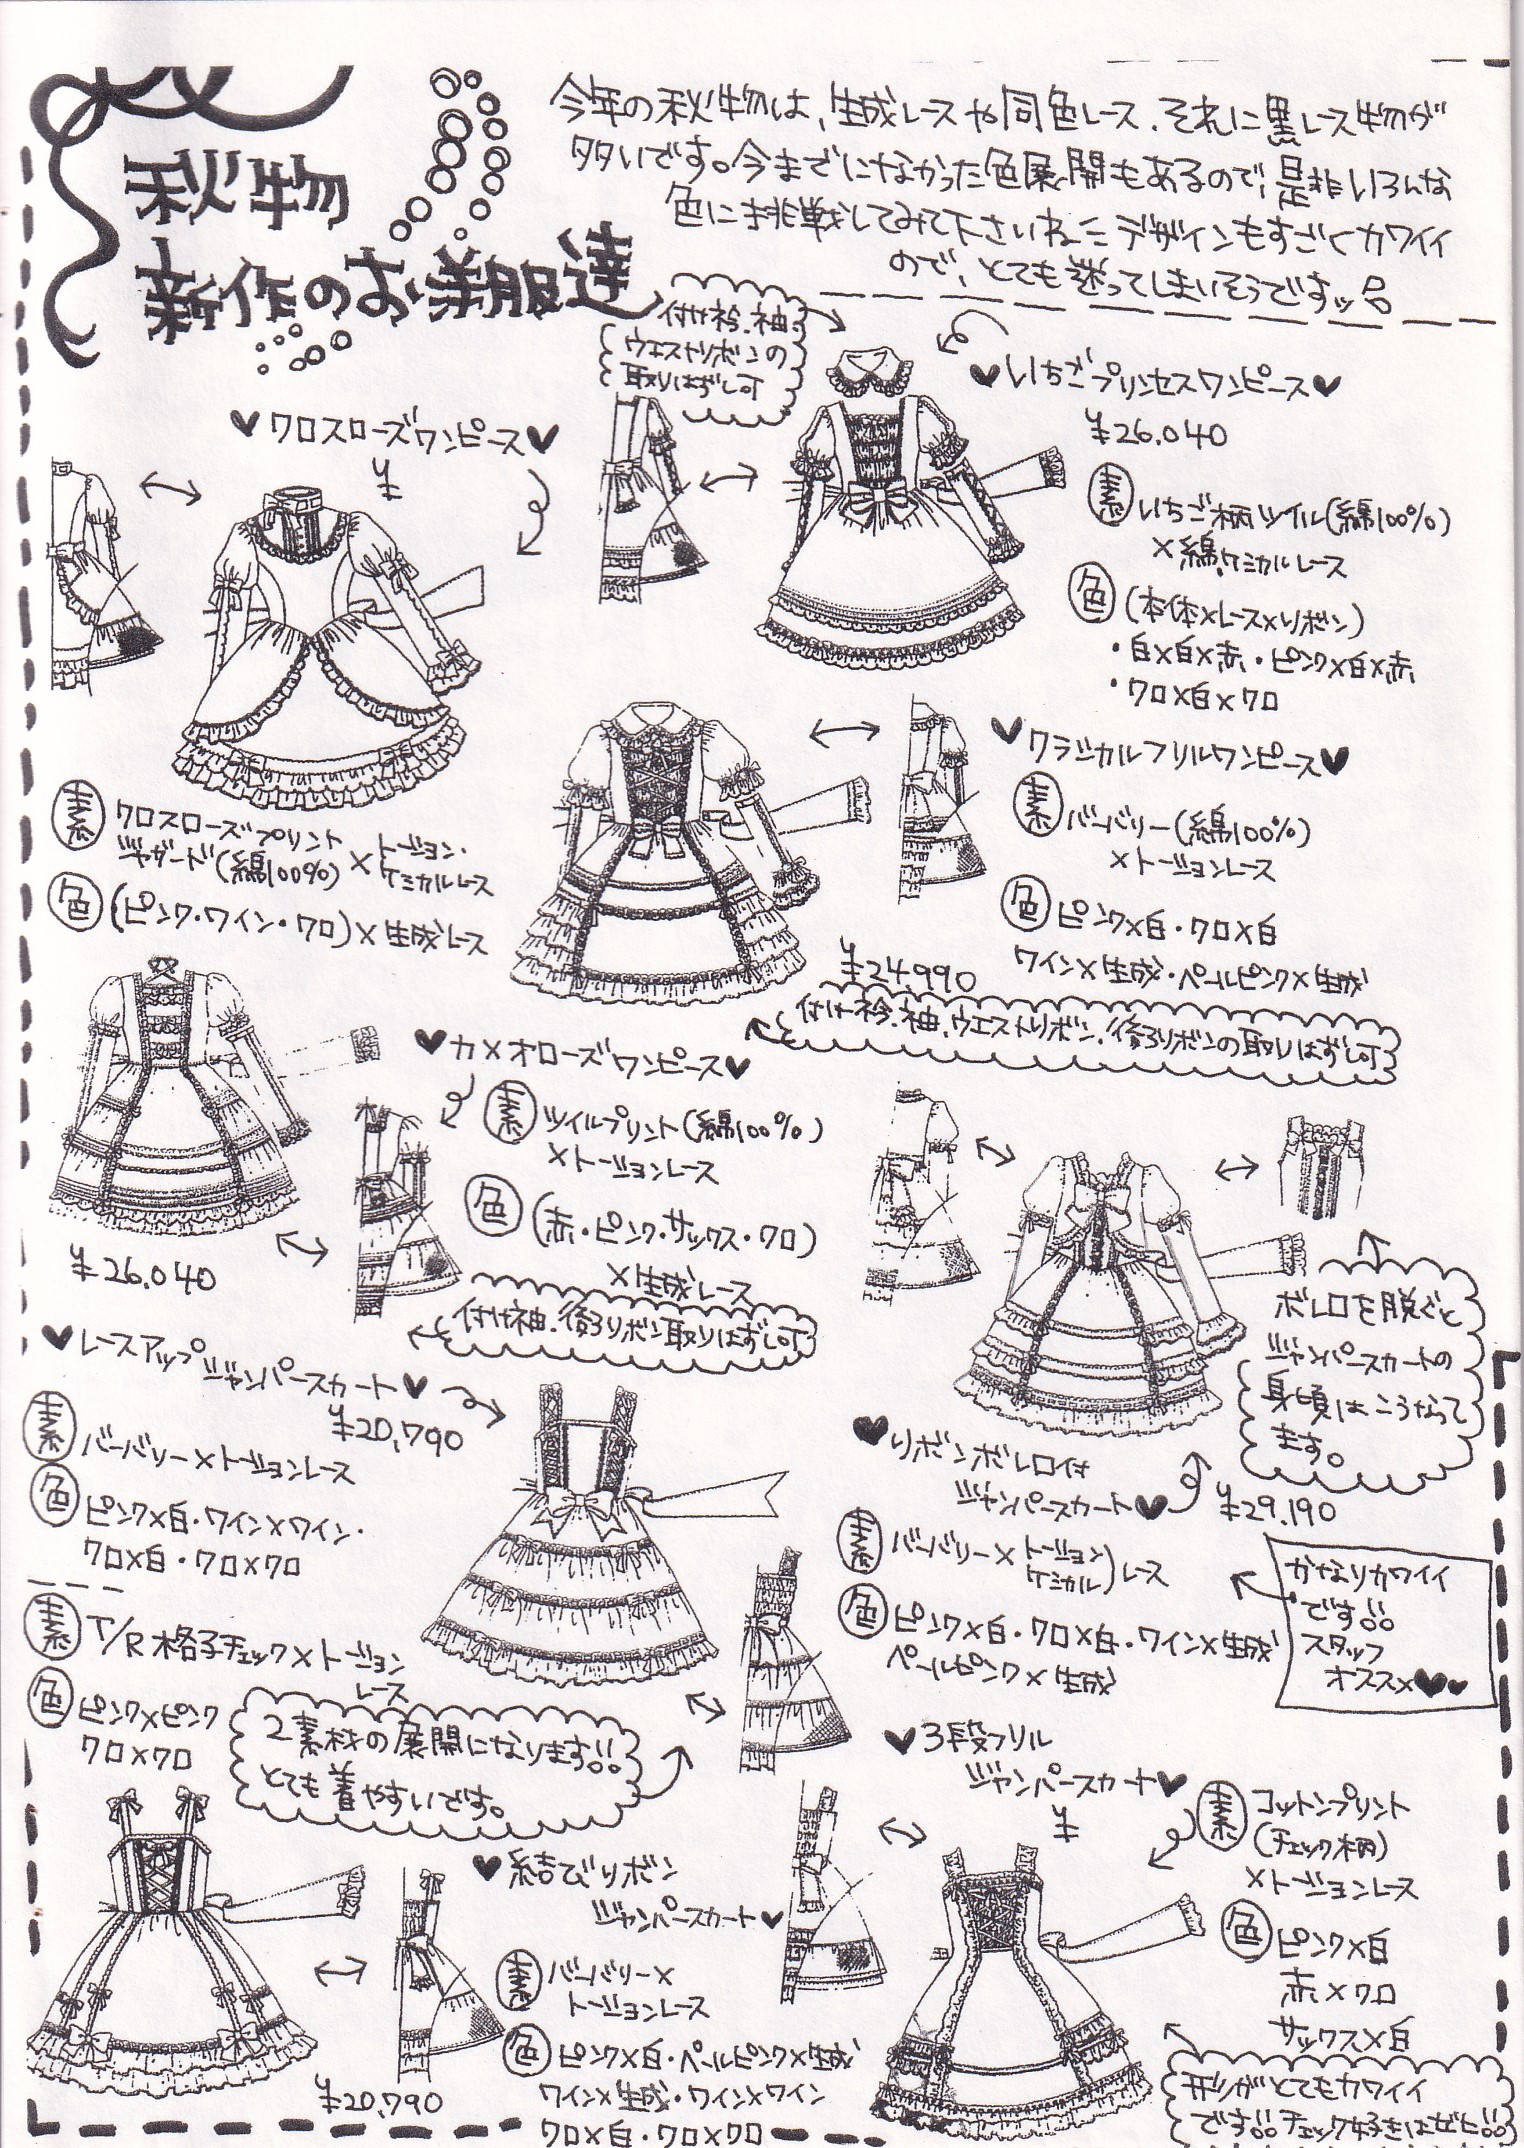 秋物
新作のお洋服達
今年の秋物は、生成レースや同色レース、それに黒レース物が
多いです。今までになかった色展開もあるので、是非いろんな
色に挑戦してみて下さいね デザインもすごくカワイイ
ので、とても迷ってしまいそうですッ
♥クロスローズワンピース♥
¥
素 クロスローズプリント
ジャガード(綿100%)×トーション・
ケミカルレース
色 (ピンク・ワイン・クロ)×生成レース
付け衿、袖
ウエストリボンの
取りはずし可
♥いちごプリンセスワンピース♥
¥26.040
素 いちご柄ツイル(綿100%)
×綿.ケミカルレース
色 (本体×レース×リボン)
・白×白×赤・ピンク×白×赤
・クロ×白×クロ
♥クラシカルフリルワンピース♥
素 バーバリー(綿100%)
×トーションレース
色 ピンク×白・クロ×白
ワイン×生成・ペールピンク×生成
¥24.990
付け衿.袖.ウエストリボン.後ろリボンの取りはずし可
♥カメオローズワンピース♥
素 ツイルプリント(綿100%)
×トーションレース
色 (赤・ピンク・サックス・クロ)
×生成レース
付け袖.後ろリボン取りはずし可
¥26.040
♥レースアップ
ジャンパースカート♥
¥20,790
素 バーバリー×トーションレース
色 ピンク×白・ワイン×ワイン・
クロ×白・クロ×クロ
素 T/R格子チェック×トーション
レース
色 ピンク×ピンク
クロ×クロ
2素材の展開になります!!
とても着やすいです。
ボレロを脱ぐと
ジャンパースカートの
身頃はこうなって
ます。
♥リボンボレロ付
ジャンパースカート♥
¥29.190
素 バーバリー×トーション
ケミカル)レース
色 ピンク×白・クロ×白・ワイン×生成
ペールピンク×生成
かなりカワイイ
です!!
スタッフ
オススメ♥♥
♥結びリボン
ジャンパースカート♥
素 バーバリー×
トーションレース
色 ピンク×白・ペールピンク×生成
ワイン×生成・ワイン×ワイン
クロ×白・クロ×クロ
¥20,790
♥3段フリル
ジャンパースカート♥
¥
素 コットンプリント
(チェック柄)
×トーションレース
色 ピンク×白
赤×クロ
サックス×白
形がとてもカワイイ
です!!チェック好きはぜヒ!!